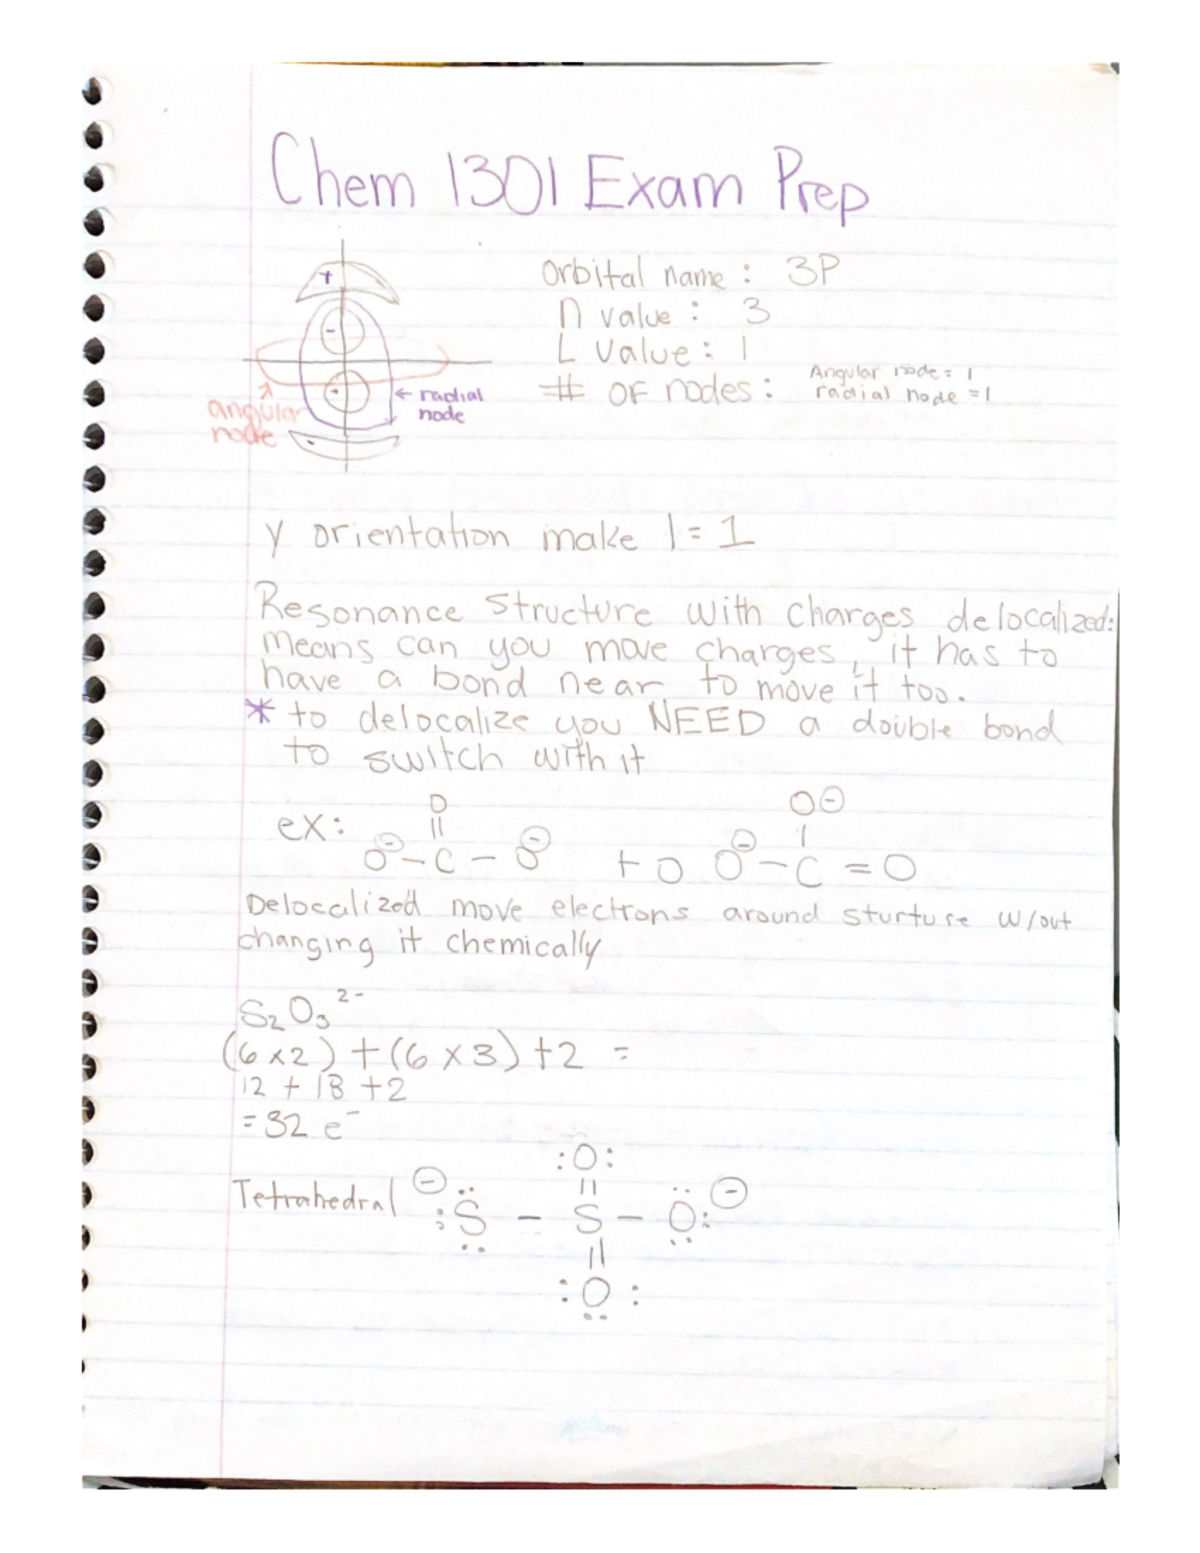 Chem 1301 Exam Prep
+
-
+
-
angular
node
← radial
node
Orbital name : 3P
n value : 3
L value : 1
# of nodes : Angular node = 1
radial node = 1
y orientation make l = 1
Resonance Structure with charges delocalized:
means can you move charges, it has to
have a bond near to move it too.
* to delocalize you NEED a double bond
to switch with it
ex:
O
||
O⊖ – C – O⊖
to
O⊖
|
O⊖ – C = O
Delocalized move electrons around sturture w/out
changing it chemically
S₂O₃²⁻
(6 x 2) + (6 x 3) + 2 =
12 + 18 + 2
= 32 e⁻
Tetrahedral
:O:
||
⊖ :S – S – O: ⊖
||
:O: